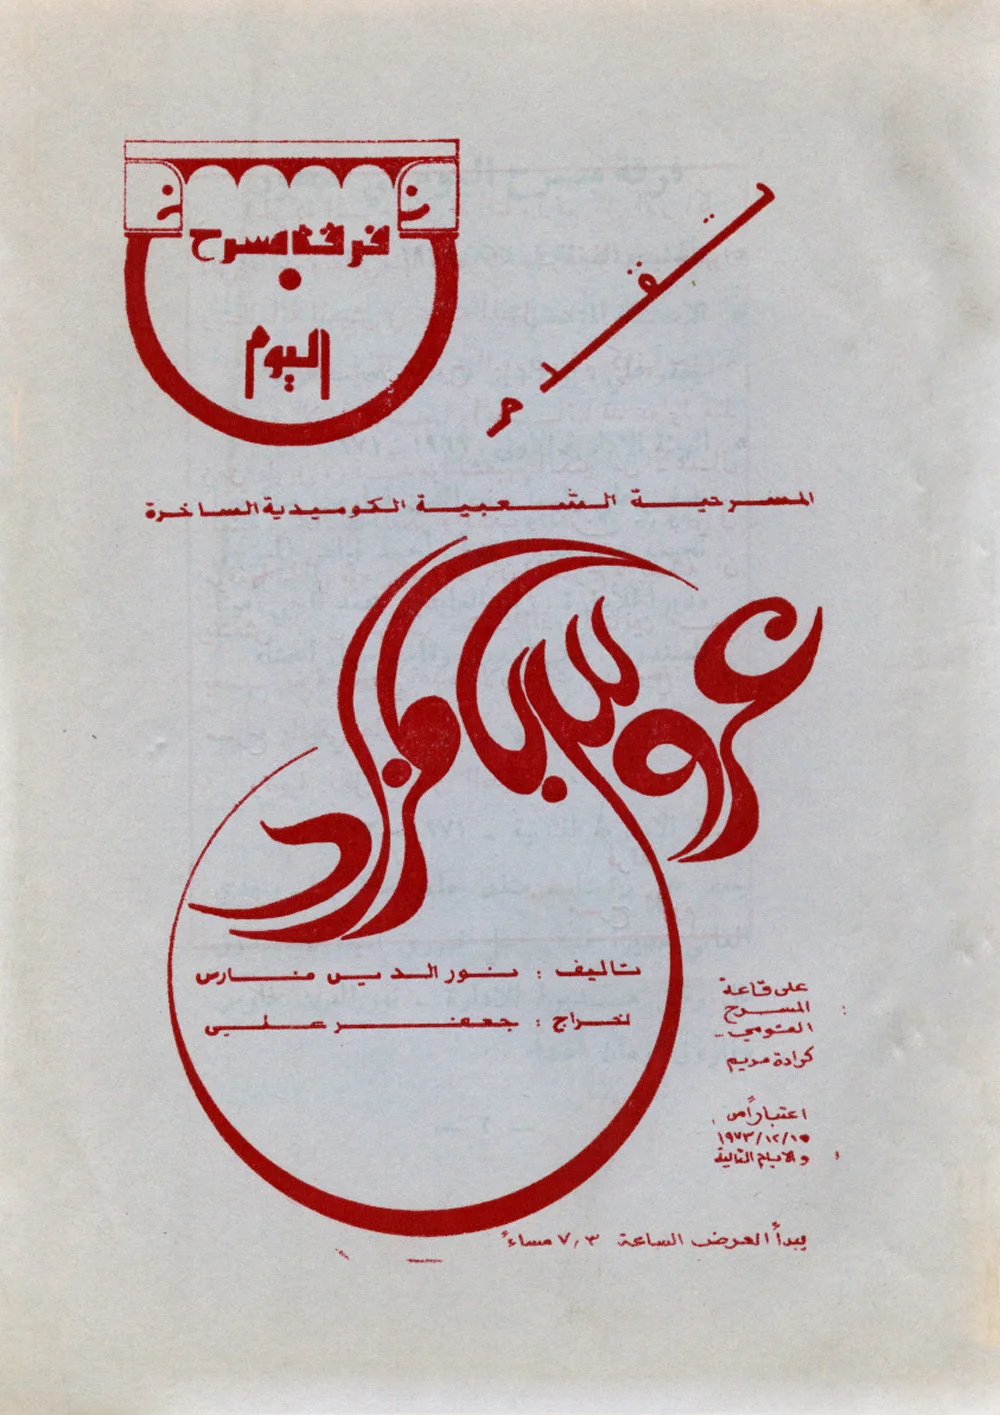 فرقة مسرح
اليوم
تقدم
المسرحية الشعبية الكوميدية الساخرة
عروس بالمزاد
تاليف : نور الدين فارس
اخراج : جعفر علي
على قاعة
المسرح
القومي -
كرادة مريم
اعتباراً من
١٩٧٣/١٢/١٥
والايام التالية
يبدأ العرض الساعة ٧,٣ مساءً